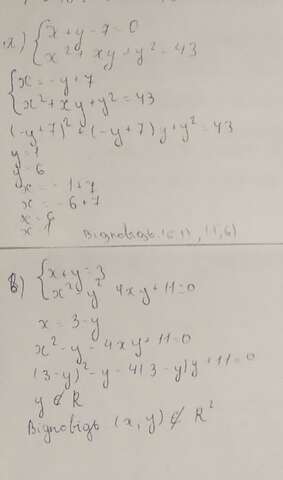 x) { x + y - 7 = 0
x² + xy + y² = 43
{ x = -y + 7
x² + xy + y² = 43
(-y+7)² + (-y+7) y + y² = 43
y = 1
y = 6
x = -1+7
x = -6+7
x = 6
x 1
Відповідь (6 1), (1,6)
в) { x + y = 3
x² - y² 4xy + 11 = 0
x = 3 - y
x² - y - 4xy + 11 = 0
(3-y)² - y - 4(3-y)y + 11 = 0
y ∉ R
Відповідь (x, y) ∉ R²